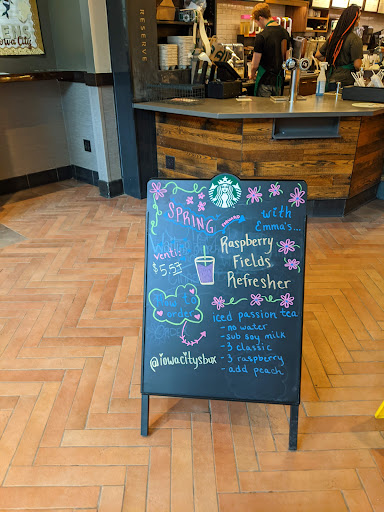 Iowa City
RESERVE
SPRING
with
Emma's...
venti:
$5.57
Raspberry
Fields
Refresher
How to
order:
iced passion tea
- no water
- sub soy milk
- 3 classic
- 3 raspberry
- add peach
@iowacitysbux